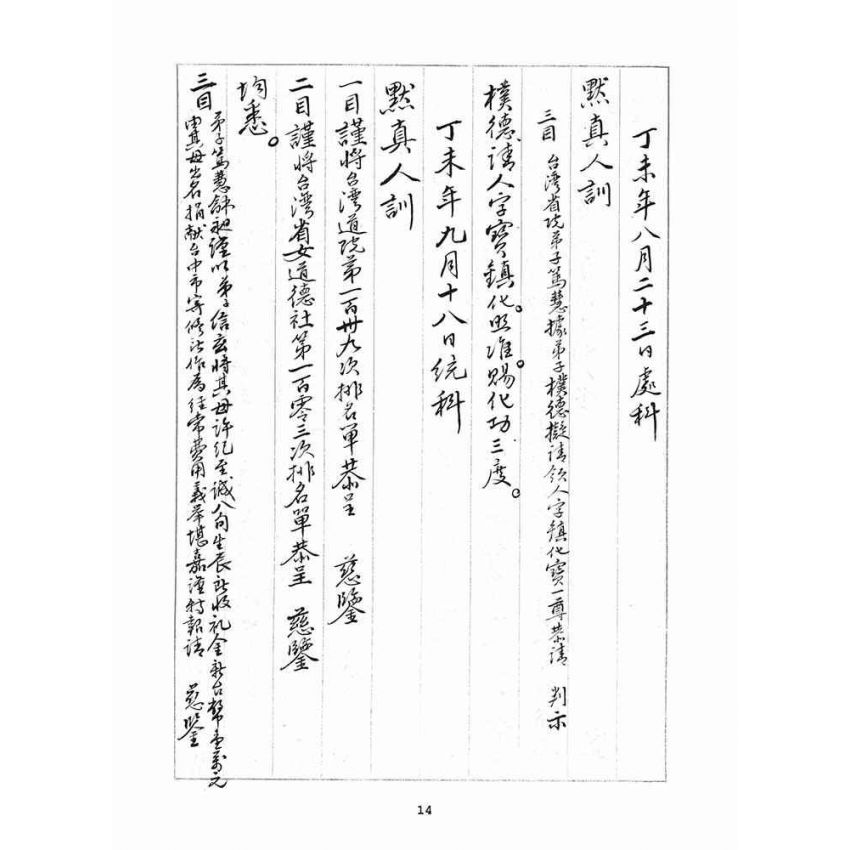 丁未年八月二十三日處科
默真人訓
三目 台湾省院弟子篤慧據弟子樸德擬請領人字鎮化寶一尊恭請 判示
樸德請人字寶鎮化。照准。賜化功三度。
丁未年九月十八日統科
默真人訓
一目謹將台湾道院第一百卅九次排名單恭呈 慈鑒
二目謹將台湾省女道德社第一百零三次排名單恭呈 慈鑒
均悉。
三目 弟子篤慧 謹以弟子信玄將其母許紀至誠八旬生辰所收礼金新台幣壹萬元
由其母出名捐献台中市寄修所作為経常費用義举堪嘉謹特報請 慈鑒
14